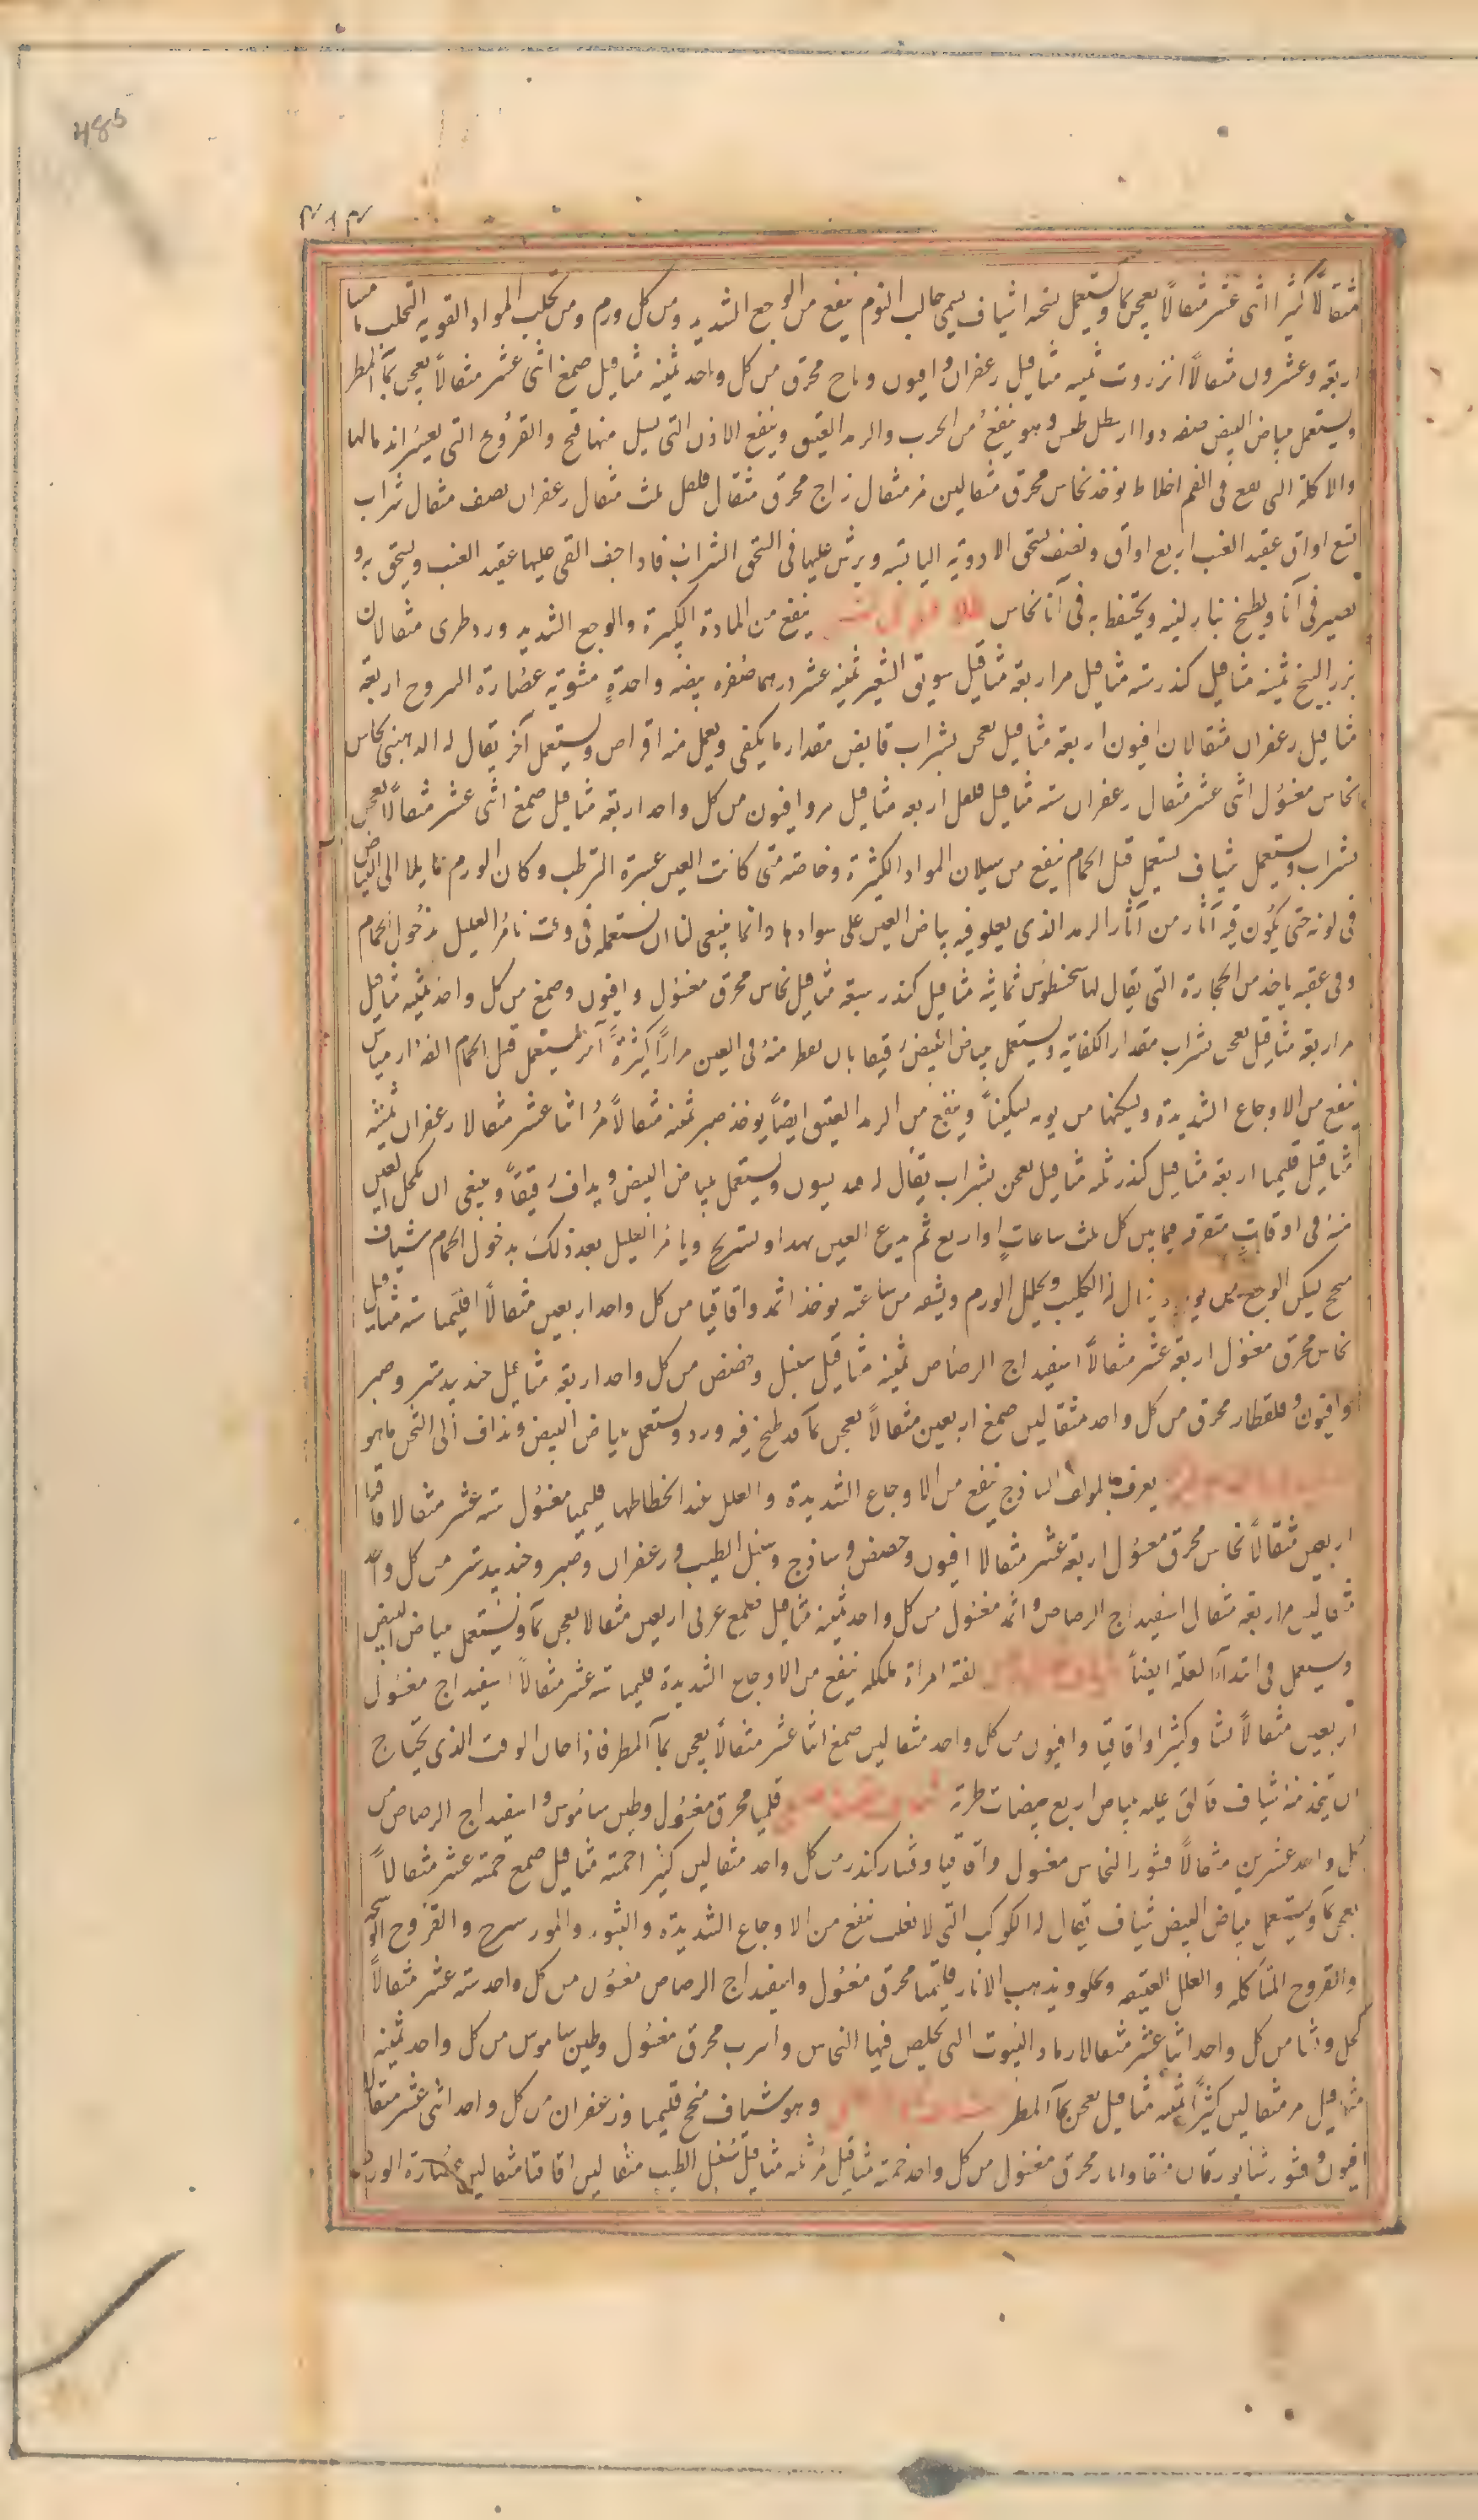 485
٣٨٣
مثقالًا كثيرا اثنى عشر مثقالًا يعجن بماء ويستعمل نسخه اشياف يسمى جالب النوم ينفع من الوجع الشديد ومن كل ورم ومن تحلب المواد القويه التحلب
اربعة وعشرون مثقالًا انزروت ثمنيه مثاقيل زعفران وافيون وماح محرق من كل واحد ثمنيه مثاقيل صمغ اثنى عشر مثقالًا يعجن بماء المطر
ويستعمل ببياض البيض صفه دواء ارسطراطس وهو ينفع من الجرب والرمد العتيق وينفع الاذن التى يسيل منها قيح والقروح التى يعسر اندمالها
والاكلة التى تقع فى الفم اخلاطه يوخذ نحاس محرق مثقالين مر مثقال زاج محرق مثقال فلفل ثلث مثقال زعفران نصف مثقال شراب
تسع اواق عقيد العنب اربع اواق ونصف تسحق الادوية اليابسة ويرش عليها فى السحق الشراب فاذا جف القى عليها عقيد العنب ويسحق به و
يصير فى اناء ويطبخ بنار لينه ويحتفظ به فى اناء نحاس ينفع من المادة الكثيرة والوجع الشديد ورد طرى مثقالان
بزر البنج ثمنيه مثاقيل كندر سته مثاقيل مر اربعة مثاقيل سويق الشعير ثمنيه عشر درهما صفره بيضه واحدة مشوية عصارة اليبروح اربعة
مثاقيل زعفران مثقالان افيون اربعة مثاقيل يعجن بشراب قابض مقدار ما يكفى ويعمل منه اقراص ويستعمل آخر يقال له الدهبنى نحاس
نحاس مغسول اثنى عشر مثقال زعفران سته مثاقيل فلفل اربعه مثاقيل مر وافيون من كل واحد اربعة مثاقيل صمغ اثنى عشر مثقالًا يعجن
بشراب ويستعمل شياف يستعمل قبل الحمام ينفع من سيلان المواد الكثيرة وخاصة متى كانت العين عسرة الترطب وكان الورم مايلا الى البياض
فى لونه حتى يكون فيه آثار من آثار الرمد الذى يعلو فيه بياض العين على سوادها وانما ينبغى لنا ان نستعمله فى وقت نأمر العليل بدخول الحمام
وفى عقبه ياخذ من الحجارة التى يقال لها سخسطوس ثمانية مثاقيل كندر سبعة مثاقيل نحاس محرق مغسول وافيون وصمغ من كل واحد ثمنيه مثاقيل
مر اربعة مثاقيل يعجن بشراب مقدار الكفاية ويستعمل ببياض البيض رقيقا بان يقطر منه فى العين مرارًا كثيرة آخر يستعمل قبل الحمام
ينفع من الاوجاع الشديدة ويسكنها من يومه تسكينًا وينفع من الرمد العتيق ايضًا يوخذ صبر ثمنيه مثقالًا مر اثنا عشر مثقالا زعفران ثمنية
مثاقيل قليميا اربعة مثاقيل كندر ثلثه مثاقيل يعجن بشراب يقال له ويستعمل ببياض البيض ويداف رقيقًا وينبغى ان يكحل العين
منه فى اوقات متفرقه فيما بين كل ثلث ساعات او اربع ثم يدع العين تهدا وتستريح ويامر العليل بعد ذلك بدخول الحمام شياف
يسكن الوجع من يومه يقال له الكليب ويحلل الورم ويشفيه من ساعته يوخذ اثمد واقاقيا من كل واحد اربعين مثقالًا اقليميا سته مثاقيل
نحاس محرق مغسول اربعة عشر مثقالًا اسفيداج الرصاص ثمنيه مثاقيل سنبل وحضض من كل واحد اربعة مثاقيل جندبيدستر وصبر
وافيون وقلقطار محرق من كل واحد مثقالين صمغ اربعين مثقالًا يعجن بماء قد طبخ فيه ورد ويستعمل ببياض البيض ويداف الى الثخن ماهو
يعرف بالمولف الساذج ينفع من الاوجاع الشديدة والعلل عند انحطاطها قليميا مغسول سته عشر مثقالا اقاقيا
اربعين مثقالًا نحاس محرق مغسول اربعة عشر مثقالا افيون وحضض وساذج وسنبل الطيب وزعفران وصبر وجندبيدستر من كل واحد
مثقالين مر اربعة مثقال اسفيداج الرصاص واثمد مغسول من كل واحد ثمنيه مثاقيل صمغ عربى اربعين مثقالا يعجن بماء ويستعمل ببياض البيض
ويستعمل فى ابتداء العلة ايضًا لفته امراة ملكه ينفع من الاوجاع الشديدة قليميا سته عشر مثقالًا اسفيداج مغسول
اربعين مثقالًا نشا وكثيرا واقاقيا وافيون من كل واحد مثقالين صمغ اثنا عشر مثقالًا يعجن بماء المطر فاذا حان الوقت الذى يحتاج
ان يتخذ منه شياف فالق عليه بياض اربع بيضات طرية قليميا محرق مغسول وطين ساموس واسفيداج الرصاص من
كل واحد عشرين مثقالًا قشور النحاس مغسول واقاقيا وقشار كندر من كل واحد مثقالين كثيرا خمسة مثاقيل صمغ خمسة عشر مثقالًا
يعجن بماء ويستعمل ببياض البيض شياف يقال له الكوكب التى لا تغلب ينفع من الاوجاع الشديدة والبثور والمورسرج والقروح
والقروح المتاكله والعلل العتيقه ويجلو ويذهب الاثار قليميا محرق مغسول واسفيداج الرصاص مغسول من كل واحد سته عشر مثقالًا
كحل ونشا من كل واحد اثنا عشر مثقالا رماد البيوت التى يخلص فيها النحاس واسرب محرق مغسول وطين ساموس من كل واحد ثمنيه
مثاقيل مر مثقالين كثيرًا ثمنيه مثاقيل يعجن بماء المطر وهو شياف منجح قليميا وزعفران من كل واحد اثنى عشر مثقالا
افيون وقشور محرق مغسول من كل واحد خمسة مثاقيل مر ثلثه مثاقيل سنبل الطيب مثقالين اقاقيا مثقالين عصارة الورد